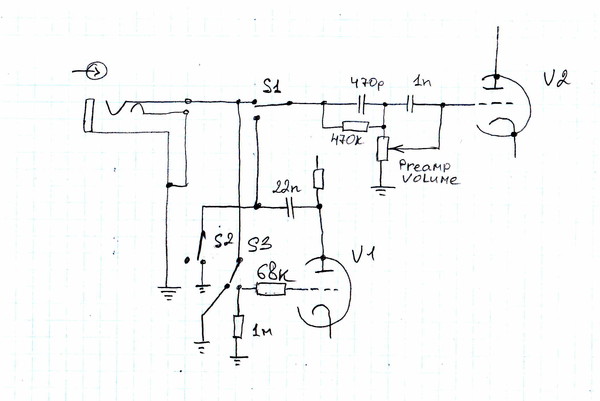 V2
S1
470p
1n
470K
PREAMP
VOLUME
22n
S2
S3
V1
68K
1M